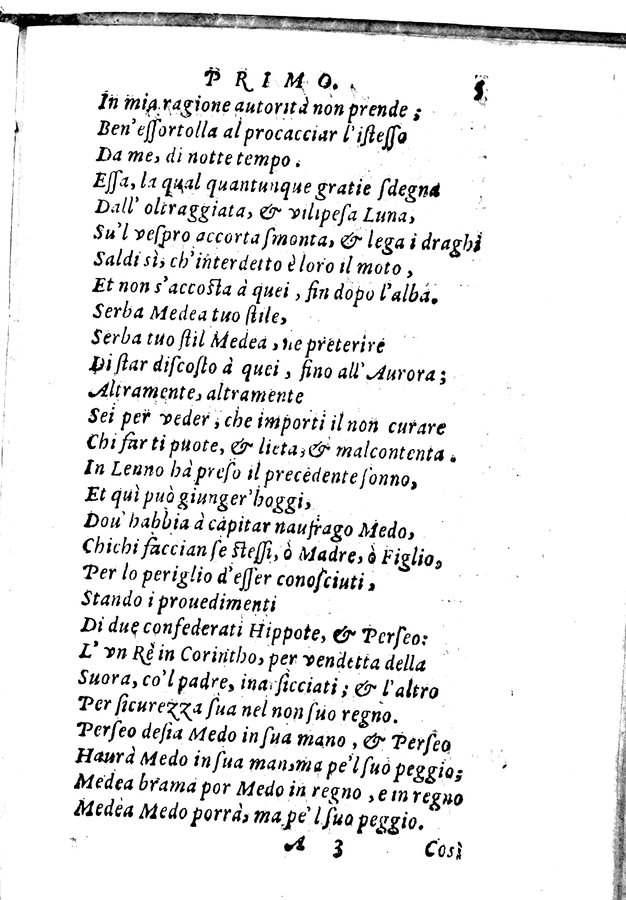 PRIMO. 5
In mia ragione autorità non prende;
Ben'eſſortolla al procacciar l'iſteſſo
Da me, di notte tempo.
Eſſa, la qual quantunque gratie ſdegna
Dall' oltraggiata, & vilipeſa Luna,
Su'l veſpro accorta ſmonta, & lega i draghi
Saldi sì, ch'interdetto è loro il moto,
Et non s'accoſta à quei, fin dopo l'alba.
Serba Medea tuo ſtile,
Serba tuo ſtil Medea, ne preterire
Di ſtar diſcoſto à quei, fino all'Aurora;
Altramente, altramente
Sei per veder, che importi il non curare
Chi far ti puote, & lieta, & malcontenta.
In Lenno hà preſo il precedente ſonno,
Et quì può giunger'hoggi,
Dou' habbia à capitar naufrago Medo,
Chichi faccian ſe ſteſſi, ò Madre, ò Figlio,
Per lo periglio d'eſſer conoſciuti,
Stando i prouedimenti
Di due confederati Hippote, & Perſeo:
L'vn Rè in Corintho, per vendetta della
Suora, co'l padre, inarſicciati; & l'altro
Per ſicurezza ſua nel non ſuo regno.
Perſeo deſia Medo in ſua mano, & Perſeo
Haurà Medo in ſua man, ma pe'l ſuo peggio;
Medea brama por Medo in regno, e in regno
Medea Medo porrà, ma pe'l ſuo peggio.
A 3 Così